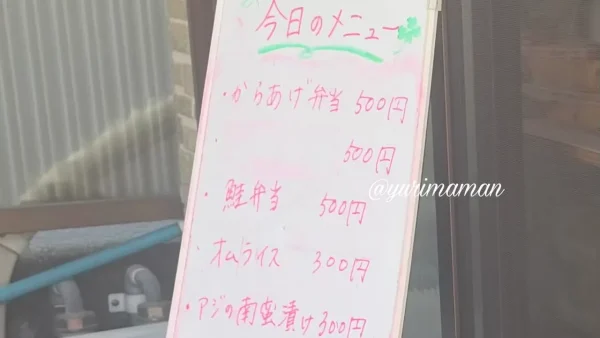 今日のメニュー
・からあげ弁当 500円
500円
・鮭弁当 500円
・オムライス 300円
・アジの南蛮漬け 300円
@yurimaman